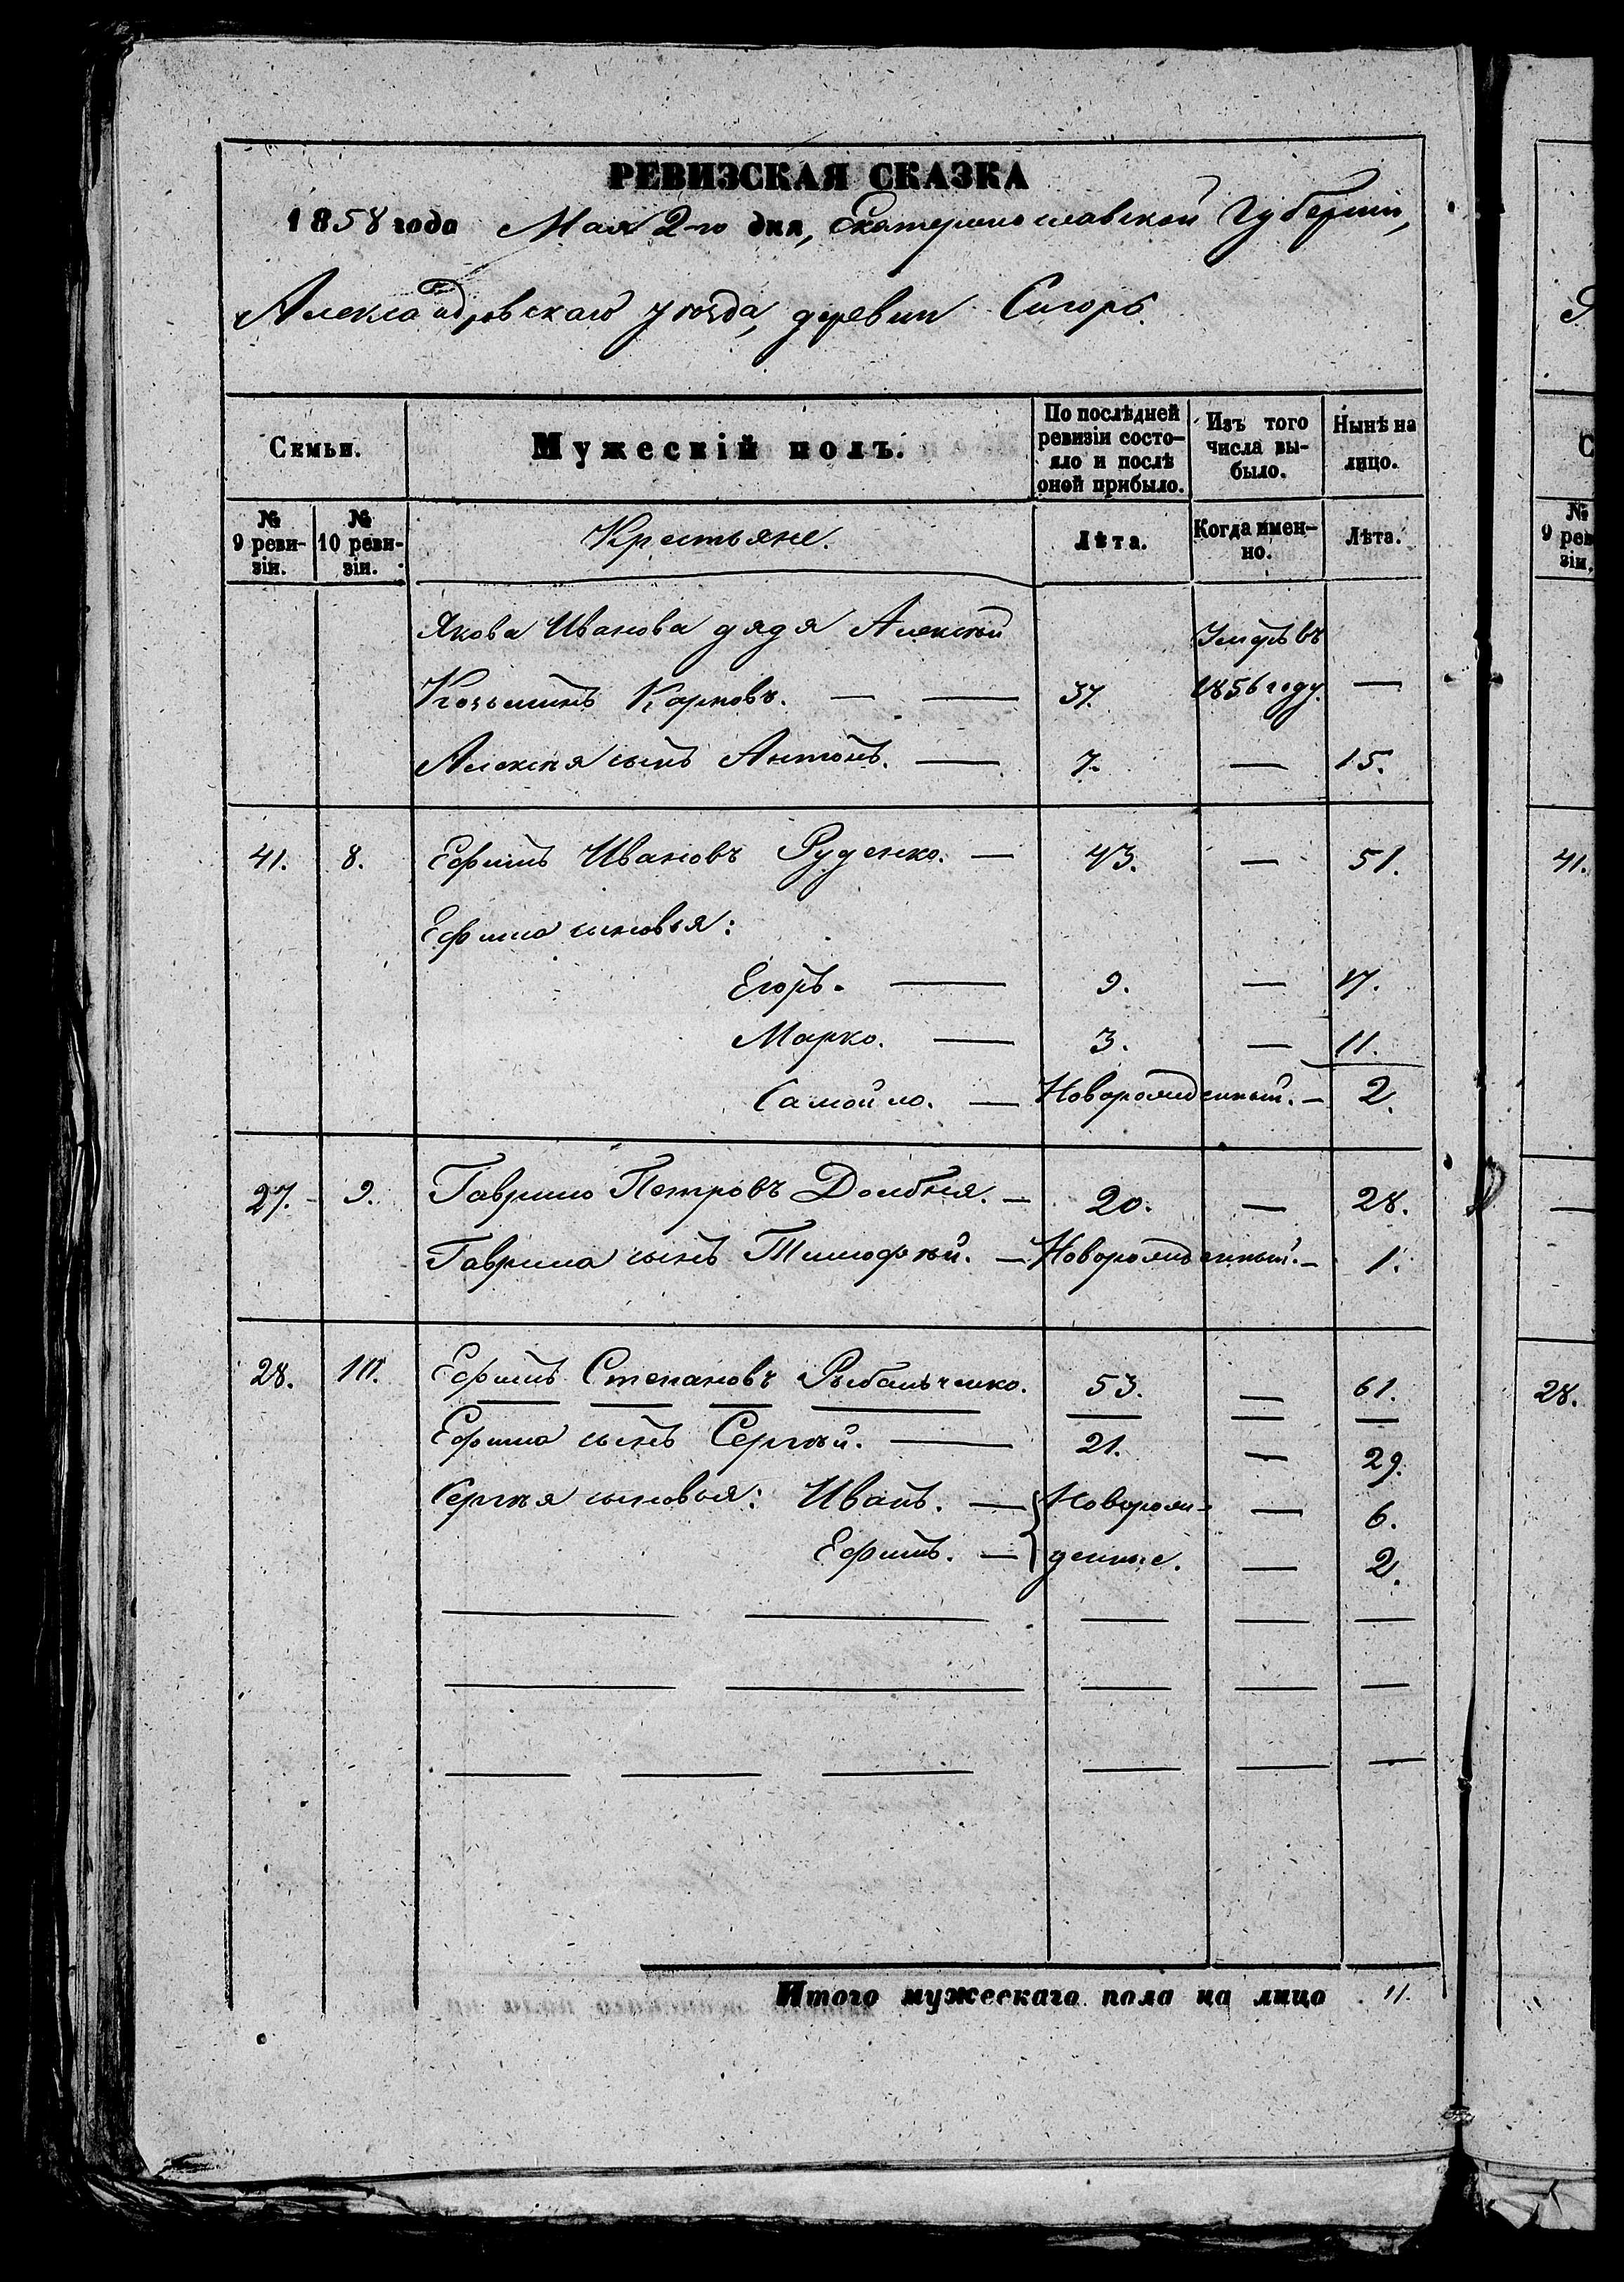 РЕВИЗСКАЯ СКАЗКА
1858 года Мая 2-го дня, Екатеринославской Губернiи,
Александровскаго уѣзда, деревни Сигоръ.
Семьи.
Мужескiй полъ.
По послѣдней ревизiи состо-
яло и послѣ
оной прибыло.
Изъ того
числа вы-
было.
Нынѣ на
лицо.
№
9 реви-
зiи.
№
10 реви-
зiи.
Крестьяне.
Лѣта.
Когда имен-
но.
Лѣта.
Якова Иванова дядя Алексѣй Умеръ въ
Козьминъ Карповъ. — — 37. 1856 году. —
Алексѣя сынъ Антонъ. — 7. — 15.
41. 8. Ефимъ Ивановъ Руденко. — 43. — 51.
Ефима сыновья:
Егоръ. — 9. — 17.
Марко. — 3. — 11.
Самойло. — Новорожденный. — 2.
27. 9. Гаврило Петровъ Долбня. — 20. — 28.
Гаврила сынъ Тимофѣй. — Новорожденный. — 1.
28. 10. Ефимъ Степановъ Рыбальченко. 53. — 61.
Ефима сынъ Сергѣй. — 21. — 29.
Сергѣя сыновья: Иванъ. — Оворож- — 6.
Ефимъ. — денные. — 2.
Итого мужескаго пола на лицо 11.
Семьи
№
9 рев
зiи.
41.
28.